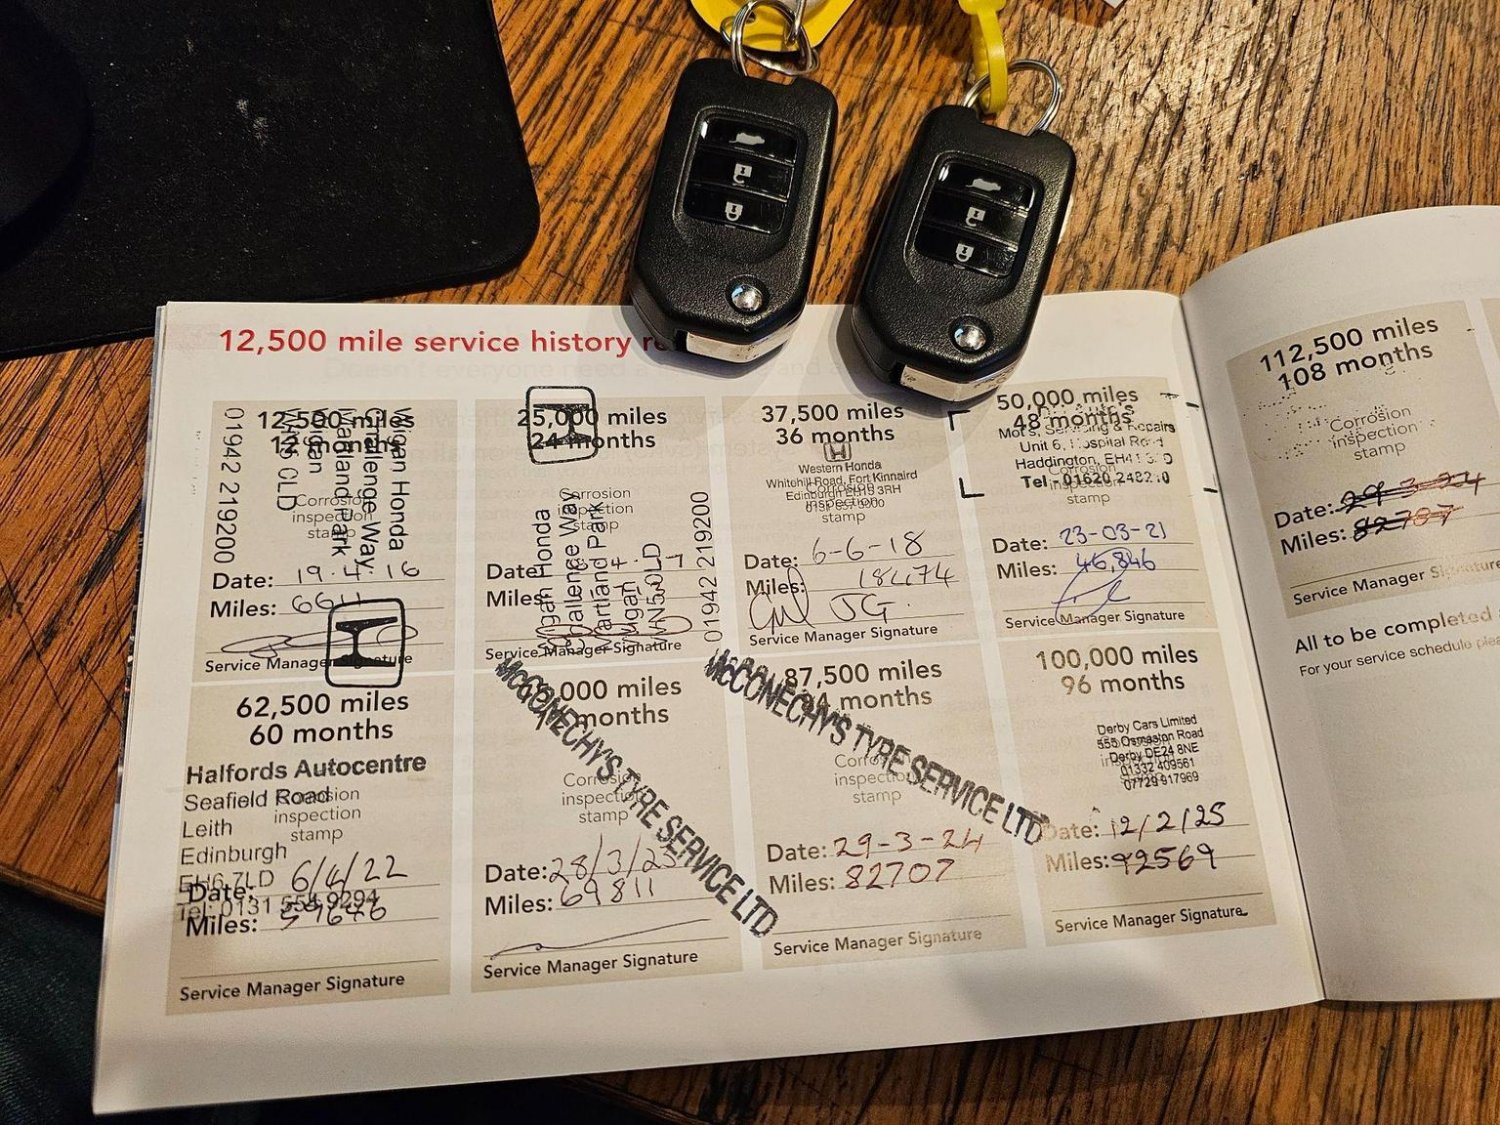 12,500 mile service history
12,500 miles
12 months
Corrosion
inspection
stamp
Wigan Honda
Challenge Way
Martland Park
Wigan
WN5 0LD
01942 219200
Date: 19.4.16
Miles:
Service Manager Signature
25,000 miles
24 months
Corrosion
inspection
stamp
Wigan Honda
Challenge Way
Martland Park
Wigan
WN5 0LD
01942 219200
Date:
Miles:
Service Manager Signature
37,500 miles
36 months
Western Honda
Whitehill Road, Fort Kinnaird
Edinburgh EH15 3RH
Corrosion
inspection
stamp
Date: 6-6-18
Miles: 18474
JG.
Service Manager Signature
50,000 miles
48 months
Servicing & Repairs
Unit 6, Hospital Road
Haddington, EH41
Corrosion
inspection
stamp
Tel - 01620 248210
Date: 23-03-21
Miles: 46,846
Service Manager Signature
62,500 miles
60 months
Halfords Autocentre
Seafield Road
Leith
Edinburgh
EH6 7LD
Tel: 0131 554 9294
Corrosion
inspection
stamp
Date: 6/4/22
Miles: 57646
Service Manager Signature
000 miles
months
McCONECHY'S TYRE SERVICE LTD
Corrosion
inspection
stamp
Date: 28/3/23
Miles: 69811
Service Manager Signature
87,500 miles
84 months
McCONECHY'S TYRE SERVICE LTD
Corrosion
inspection
stamp
Date: 29-3-24
Miles: 82707
Service Manager Signature
100,000 miles
96 months
Derby Cars Limited
555 Osmaston Road
Derby DE24 8NE
01332 409561
07729 917969
Date: 12/2/25
Miles: 92569
Service Manager Signature
112,500 miles
108 months
Corrosion
inspection
stamp
Date: 29-3-24
Miles: 82707
Service Manager Signature
All to be completed
For your service schedule